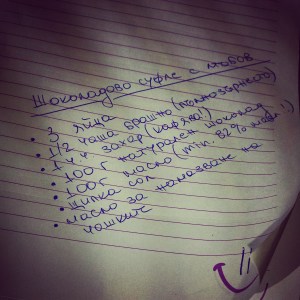 Шоколадово суфле с любов
• 3 яйца
• 1/2 чаша брашно (пълнозърнесто)
• 1 ч.ч захар (кафява!)
• 100 г натурален шоколад
• 100 г масло (min. 82% мазн.!)
• Щипка сол
• Масло за намазване на
чашките